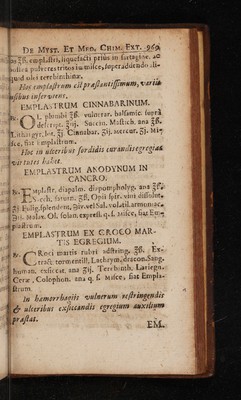 DE MYST. ET MED. CHIM. EXT. 969
liquefacti prius in sartagine, ac
postea pulveres tritos immisce, superaddendo
quid olei terebinthinæ.
Hoc emplastrum est præstantissimum,
usibus inserviens.
EMPLASTRUM CINNABARINUM.
℞. Ol. plumbi ℥ß. vulnerar. balsamic. supra
descript. ʒiij. Succin. Mastich. ana ℥ß.
Lithargyr. Cinnabar. ʒij. Mercur. ʒi. Mi-
sce, fiat emplastrum.
Hoc in ulceribus sordidis curandis egregias
virtutes habet.
EMPLASTRUM ANODYNUM IN
CANCRO.
℞. Emplastr. diapalm. diapompholyg. ana ℥ß.
Opii
Fulig. splendent.
Ol. solan. express. q. s. Misce, fiat Em-
plastrum.
EMPLASTRUM EX CROCO MAR-
TIS EGREGIUM.
℞. CRoci martis rubri adstring. ℥ß. Ex-
tract. tormentill. Lachrym. dracon. Sang.
human. exsiccat. ana ʒij. Terebinth.
Ceræ, Colophon. ana q. s. Misce, fiat Empla-
strum.
In hæmorrhagiis vulnerum restringendis
& ulceribus exsiccandis egregium auxilium
præstat.
EM.